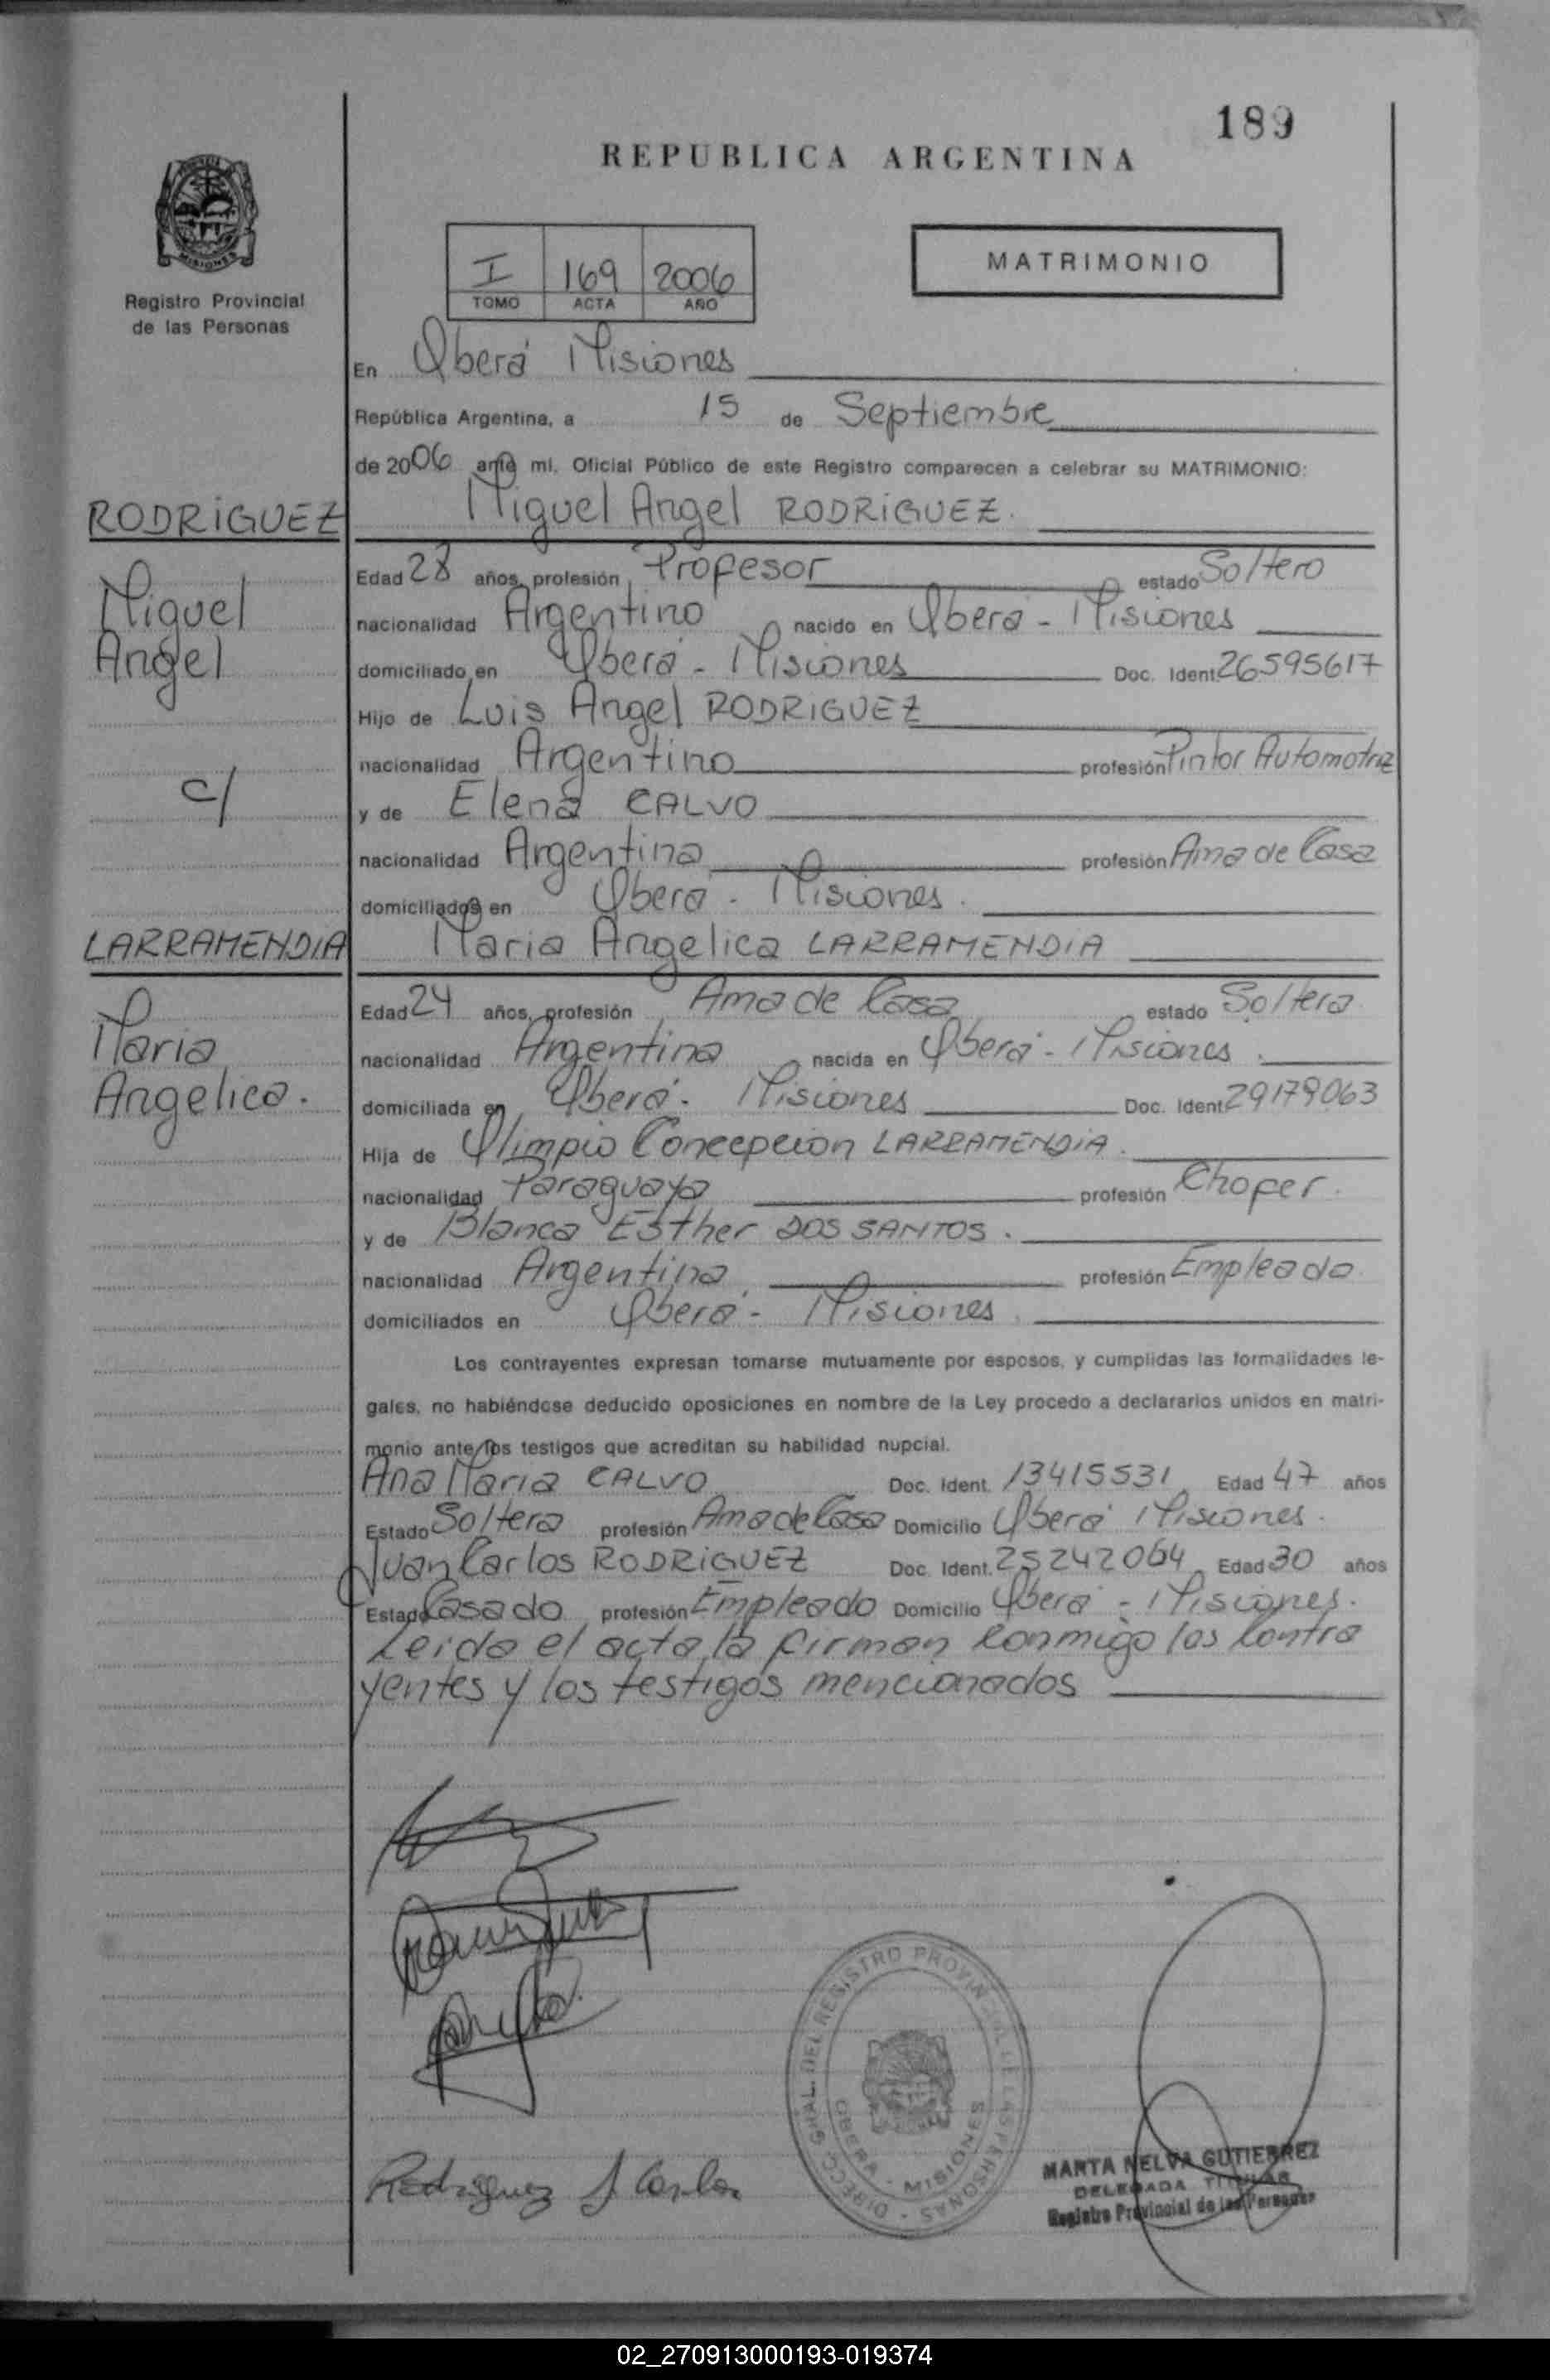 189
REPUBLICA ARGENTINA
MISIONES
Registro Provincial
de las Personas
I 169 2006
TOMO ACTA AÑO
MATRIMONIO
En Oberá Misiones
República Argentina, a 15 de Septiembre
de 2006 ante mi, Oficial Público de este Registro comparecen a celebrar su MATRIMONIO:
RODRIGUEZ
Miguel Angel RODRIGUEZ.
Miguel
Angel
Edad 28 años, profesión Profesor estado Soltero
nacionalidad Argentino nacido en Oberá - Misiones
domiciliado en Oberá - Misiones Doc. Ident 26595617
Hijo de Luis Angel RODRIGUEZ
nacionalidad Argentino profesión Pintor Automotriz
c/
y de Elena CALVO
nacionalidad Argentina profesión Ama de Casa
domiciliados en Oberá - Misiones.
LARRAMENDIA
Maria Angelica LARRAMENDIA
Maria
Angelica.
Edad 24 años, profesión Ama de Casa estado Soltera
nacionalidad Argentina nacida en Oberá - Misiones.
domiciliada en Oberá - Misiones Doc. Ident. 29179063
Hija de Olimpio Concepcion LARRAMENDIA.
nacionalidad Paraguaya profesión Chofer.
y de Blanca Esther DOS SANTOS.
nacionalidad Argentina profesión Empleada
domiciliados en Oberá - Misiones.
Los contrayentes expresan tomarse mutuamente por esposos, y cumplidas las formalidades le-
gales, no habiéndose deducido oposiciones en nombre de la Ley procedo a declararlos unidos en matri-
monio ante los testigos que acreditan su habilidad nupcial.
Ana Maria CALVO Doc. Ident. 13415531 Edad 47 años
Estado Soltera profesión Ama de Casa Domicilio Oberá Misiones.
Juan Carlos RODRIGUEZ Doc. Ident. 25242064 Edad 30 años
Estado Casado profesión Empleado Domicilio Oberá - Misiones.
Leida el acta, la firman conmigo los contra
yentes y los testigos mencionados
DIRECC. GRAL. DEL REGISTRO PROVINCIAL DE LAS PERSONAS
OBERA - MISIONES
Rodriguez J Carlos
MARTA NELVA GUTIERREZ
DELEGADA TITULAR
Registro Provincial de las Personas
02_270913000193-019374